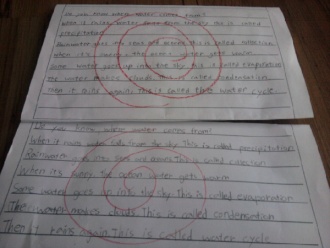 Do you know where water comes from?
When it rains water falls from the sky this is called
precipitation
Rainwater goes into seas and oceans this is called collection
When it's sunny the ocean water gets warm
Some water goes up into the sky this is called evaporation
the water makes clouds this is called condensation
then it rains again this is called the water cycle
Do you know where water comes from?
When it rains water falls from the sky This is called precipitation
Rainwater goes into seas and oceans This is called collection
When it's sunny the ocean water gets warm
Some water goes up into the sky this is called evaporation
The water makes clouds This is called condensation
Then it rains again This is called water cycle